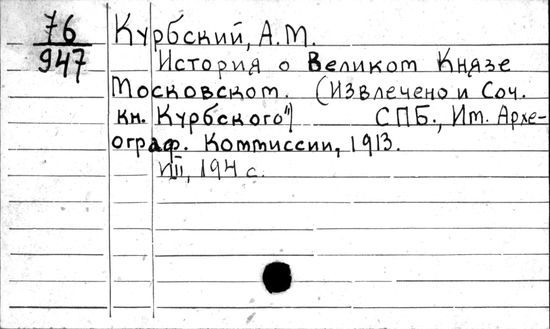 76 Курбский, А.М.
947 История о Великом Князе
Московском. (Извлечено и Соч.
кн. Курбского") СПБ., Им. Архе-
ограф. Коммиссии, 1913.
VIII, 194 с.